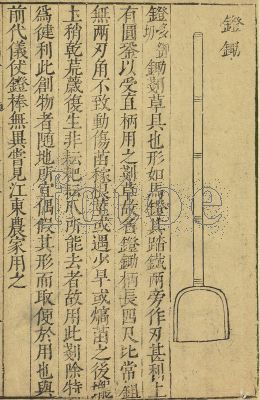 鐙鋤
鐙鋤剗草具也形如馬鐙其踏鐵兩旁作刃甚利上
有圓銎以受直柄用之剗草故名鐙鋤柄長四尺比常鉏
無兩刃角不致動傷苗稼根莖或遇少旱或熇苗之後壠
土稍乾荒薉復生非耘耙耘爪所能去者故用此剗除特
為健利此創物者隨地所宜偶假其形而取便於用也與
前代儀仗鐙棒無異嘗見江東農家用之